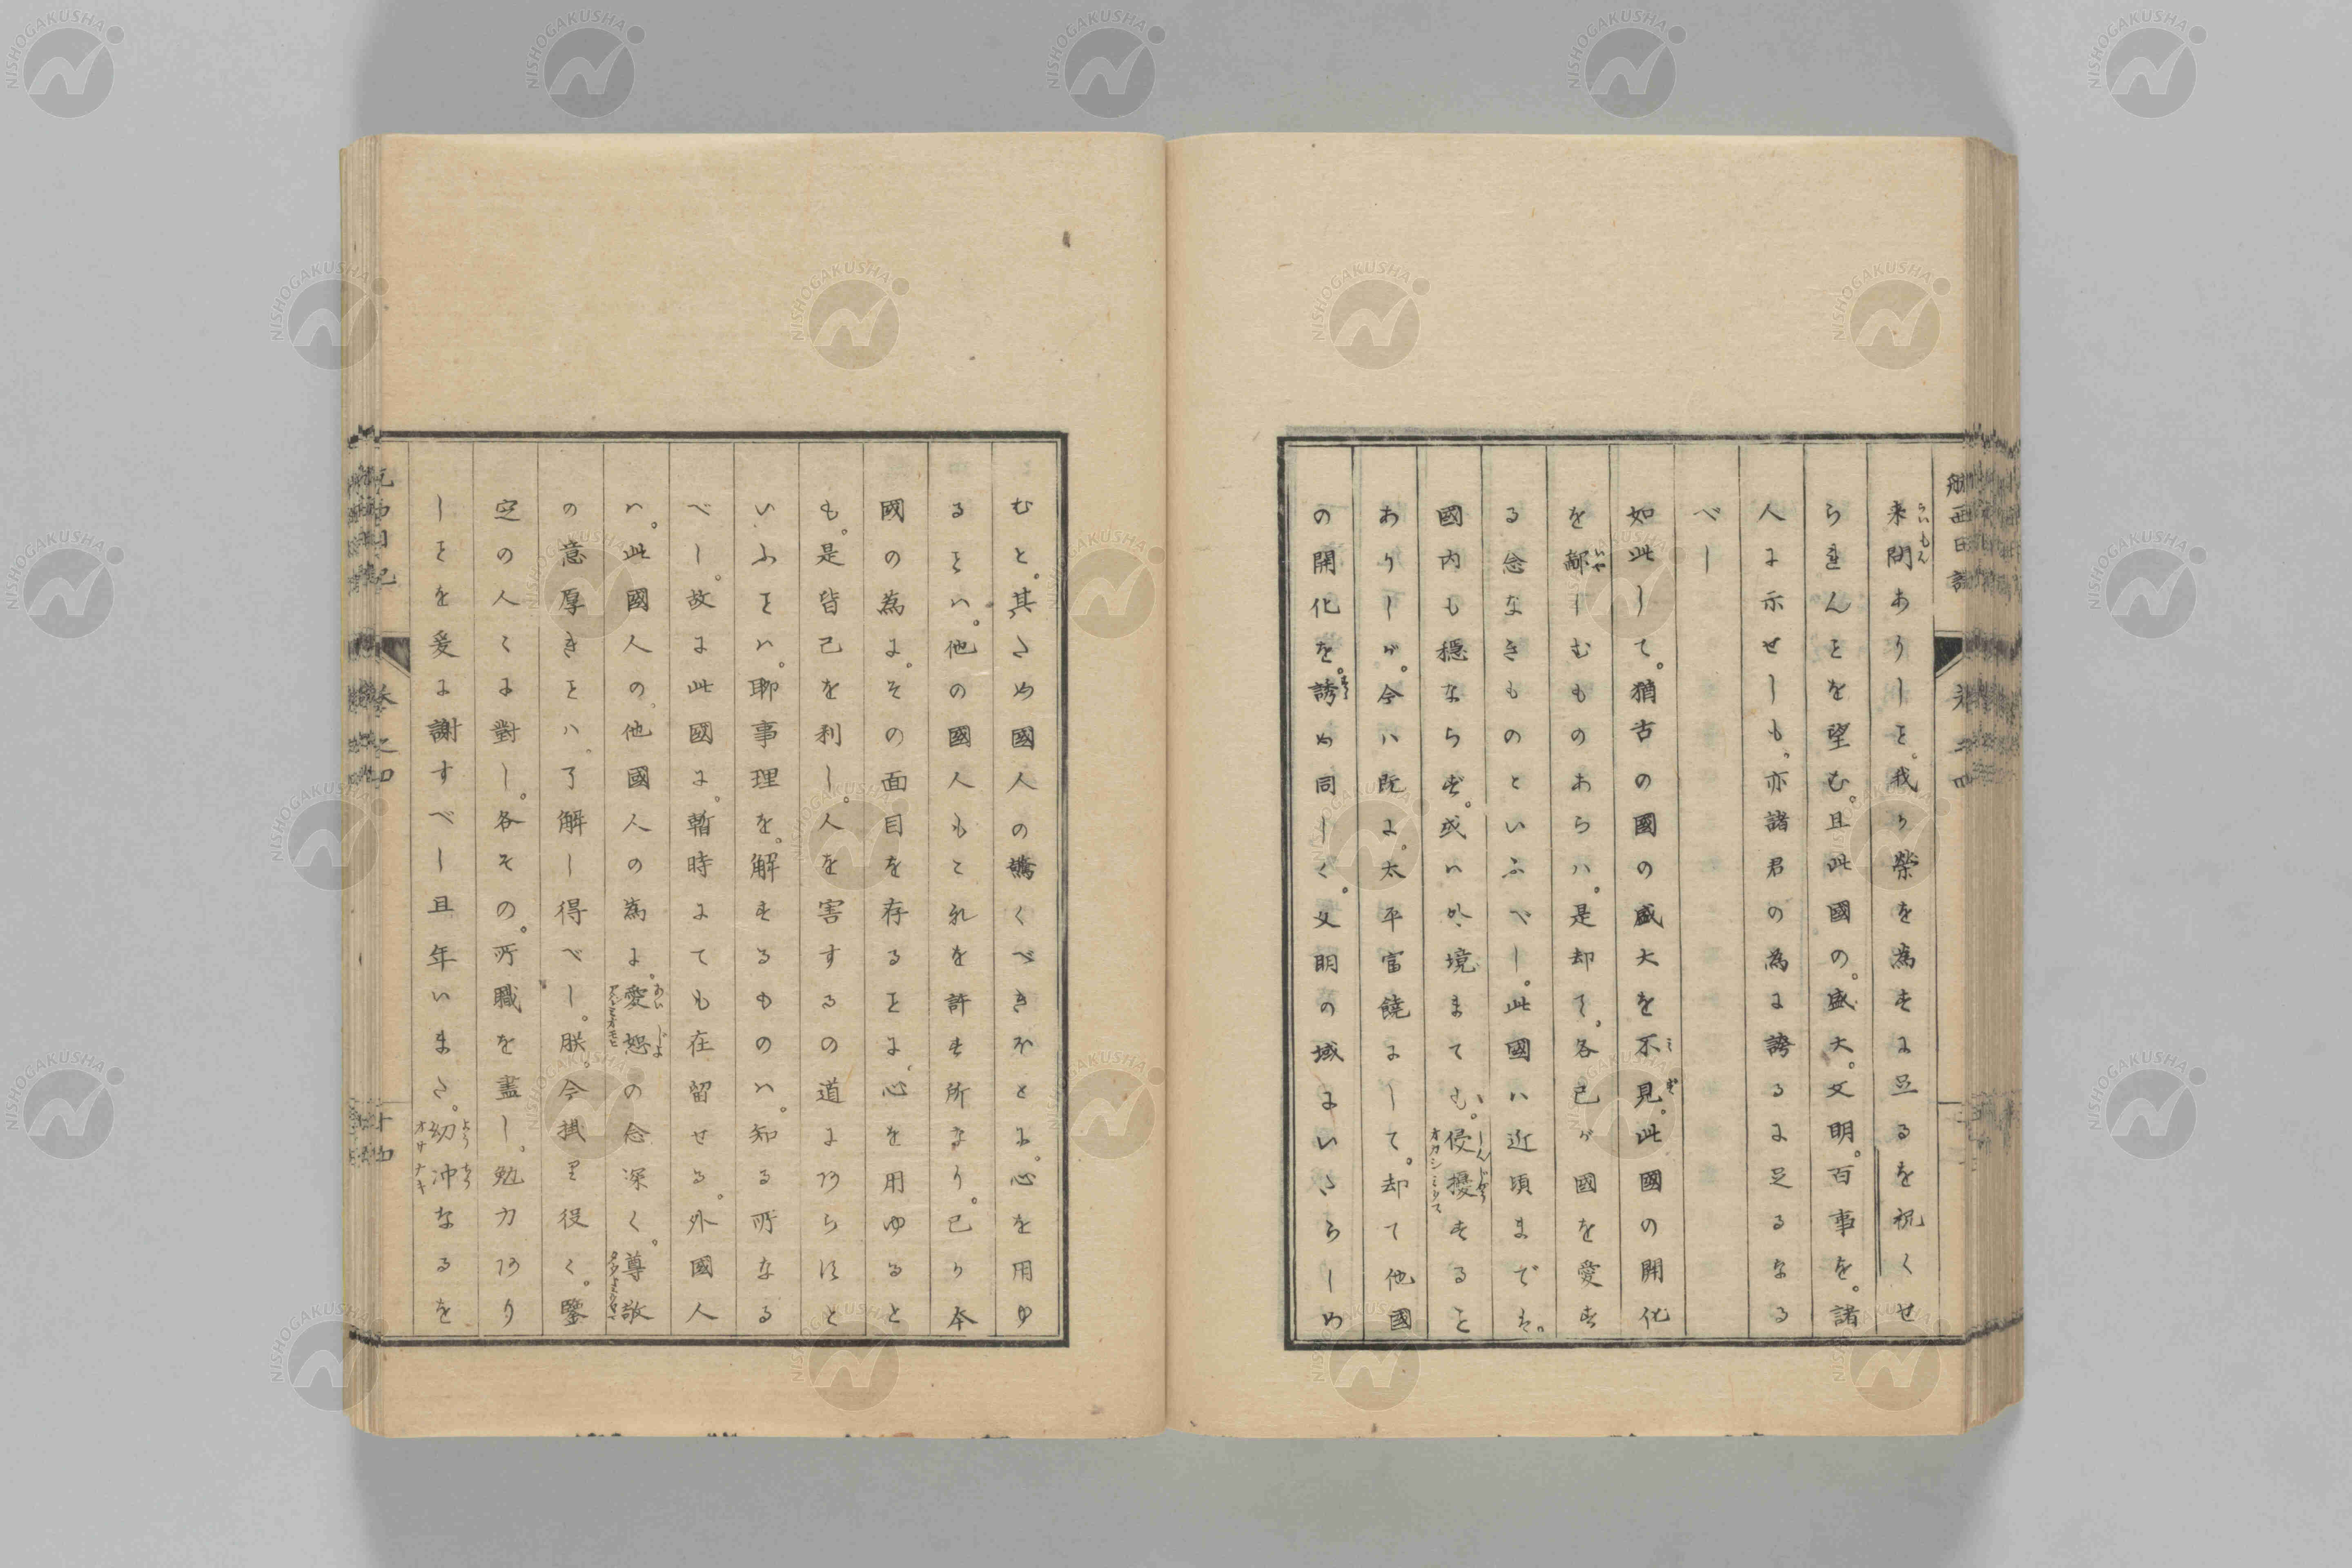 航西日記
卷之四
来問ありしを。我り榮を為すに足るを祝くせ
らまんとを望む。且此國の。盛大。文明。百事を。諸
人に示せしも。亦諸君の為に誇るに足るなる
べし
如此して。猶古の國の盛大を不見。此國の開化
を鄙しむものあらハ。是却て。各己が國を愛す
る念なきものといふべし。此國ハ近頃までは。
國内も穏ならず。或ハ外境までも。侵擾すると
ありしが。今ハ既に。太平富饒にして。却て他國
の開化を。誘め同しく。文明の域にいたらしめ
むと。其ため國人の驕くべきをとに。心を用ゆ
るとハ。他の國人もこれを許す所なり。己り本
國の為に。その面目を存るとに心を用ゆると
も。是皆己を利し。人を害するの道にあらすと
いふとハ。聊事理を。解するものハ。知る所なる
べし。故に此國に。暫時にても在留せる。外國人
ハ。此國人の。他國人の為に。愛恕の念深く。尊敬
の意厚きとハ。了解し得べし。朕。今掛り役く。鑒
定の人々に對し。各その。所職を盡し。勉力あり
しとを爰に謝すべし且年いまた。幼冲なるを
航西日記
卷之四
十四